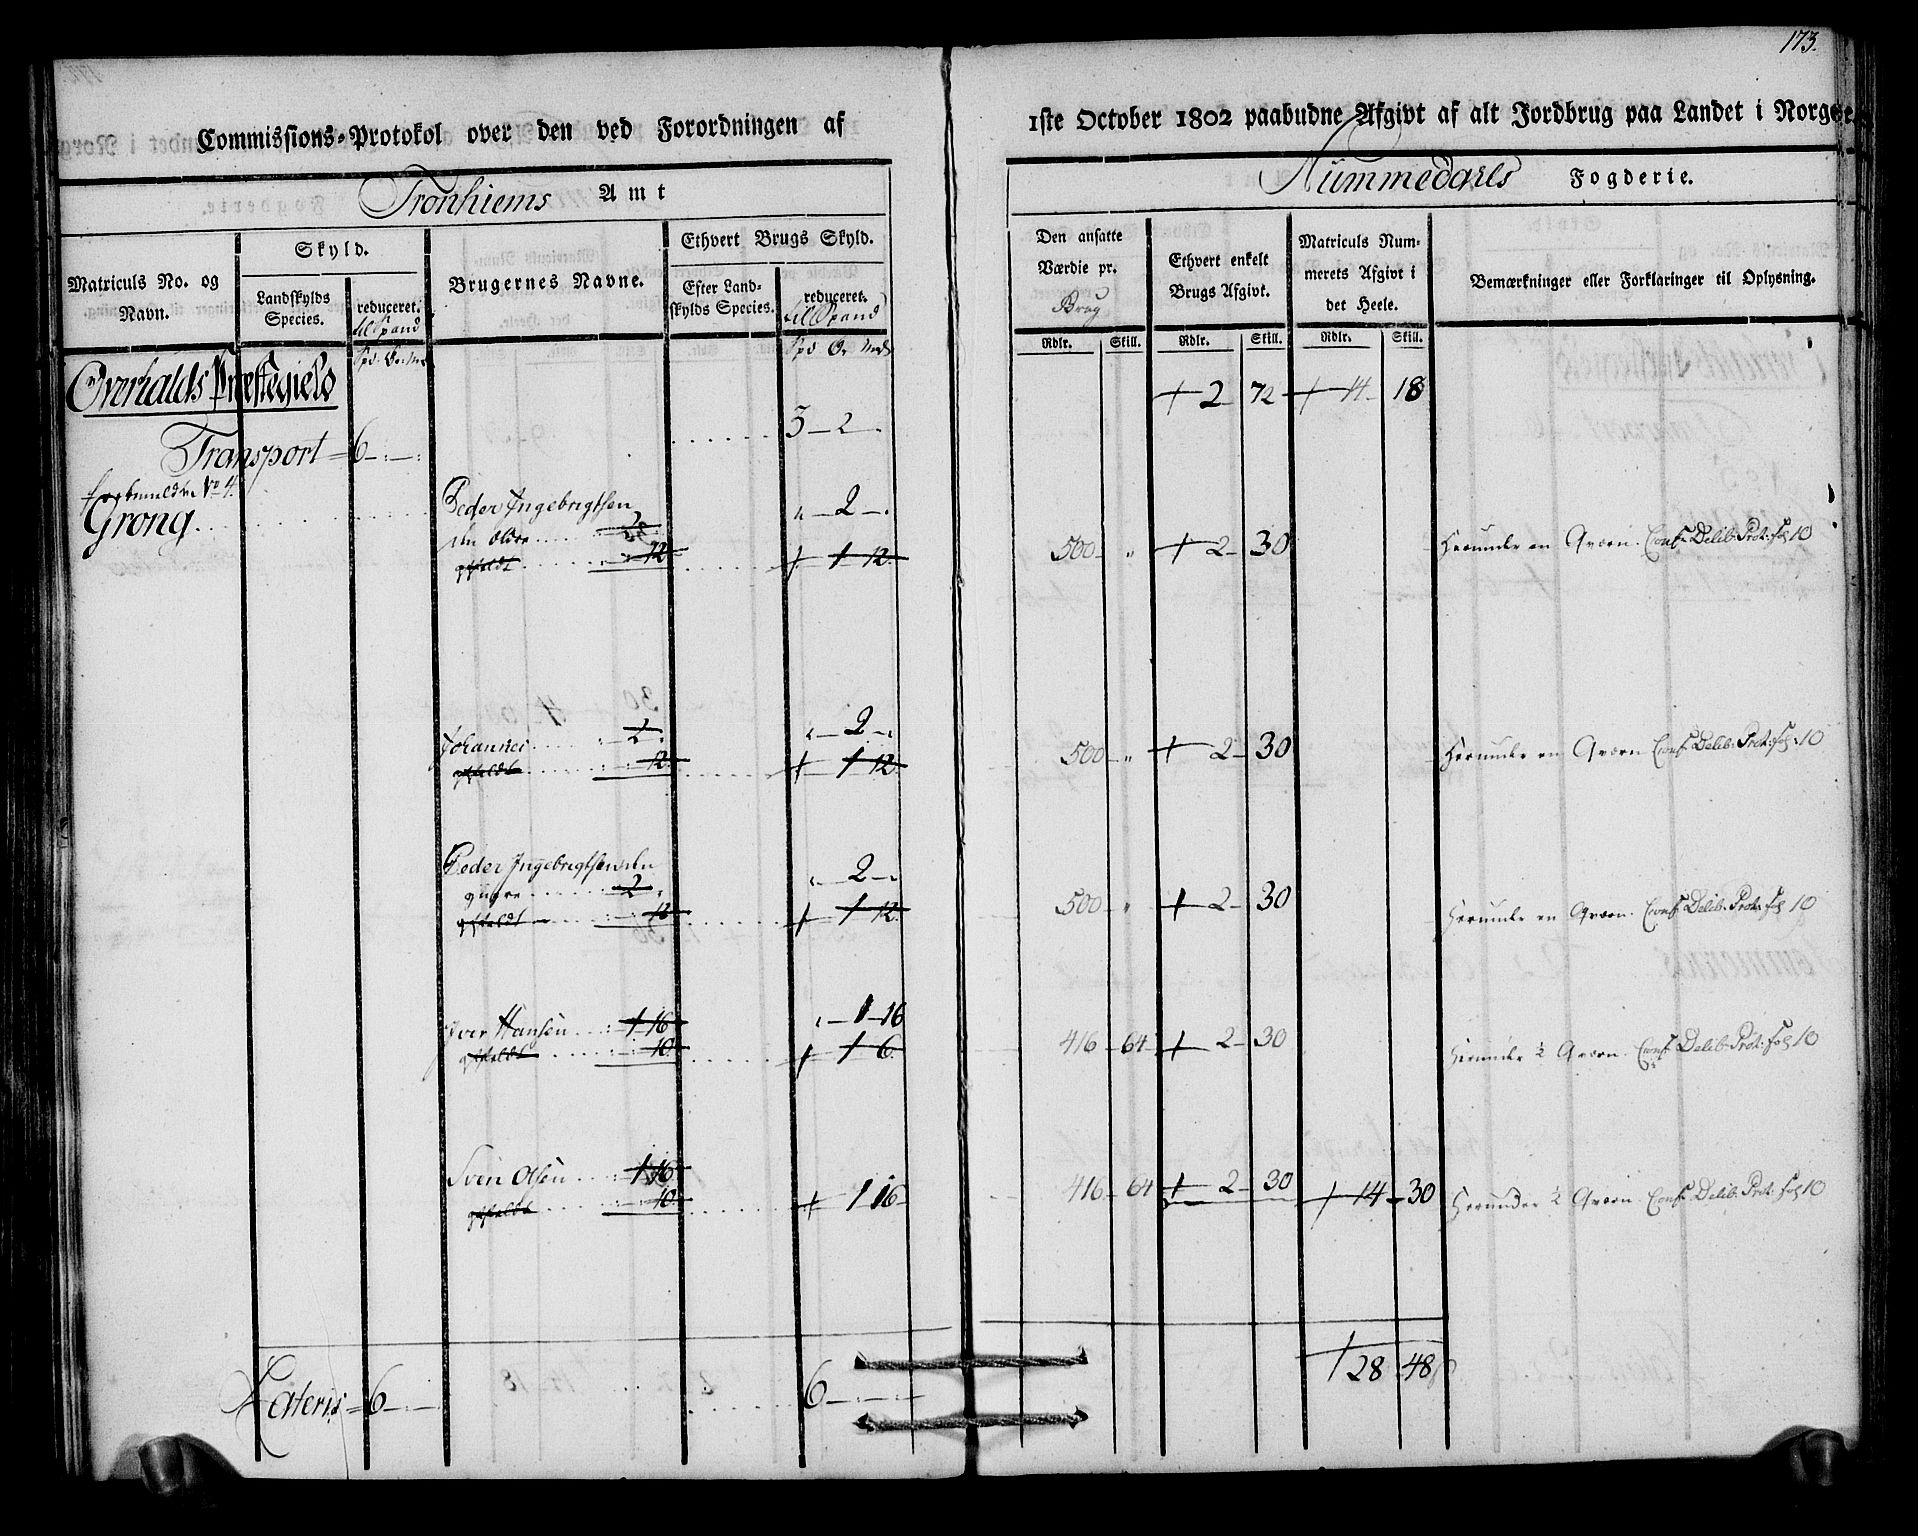 173.
Commissions-Protokol over den ved Forordningen af 1ste October 1802 paabudne Afgivt af alt Jordbrug paa Landet i Norge.
Tronhiems Amt
Nummedahls Fogderie.
Matriculs No. og Navn.
Skyld.
Landskylds Species.
reduceret. til Spand
Brugernes Navne.
Ethvert Brugs Skyld.
Efter Landskylds Species.
reduceret. til Spand
Den ansatte Værdie pr. Brug
Ethvert enkelt Brugs Afgivt.
Matriculs Nummerets Afgivt i det Heele.
Bemærkninger eller Forklaringer til Oplysning.
Spd. Ør. Mk
Spd Ør Mk
Rdlr. Skill. Rdlr. Skill. Rdlr. Skill.
Overhalds Præstegield
+ 2 72 + 14 18
Transport 6 3 2
forbemeldte No 4.
Grong
Peder Ingebrigtsen 2
den Ældre 500 " + 2 30 Herunder en Qværn. Conf. Delib. Prot. fol 10
12 + 1 12
Johannes 2 2 500 " + 2 30 Herunder en Qværn Conf. Delib. Prot. fol 10
12 + 1 12
Peder Ingebrigtsen den 2
yngre 2 500 " + 2 30 Herunder en Qværn. Conf. Delib. Prot. fol 10
12 + 1 12
Iver Hansen 1 16 1 16 416 64 + 2 30 Herunder ½ Qværn. Conf. Delib. Prot. fol 10
10 + 1 6
Sven Olsen 1 16 416 64 + 2 30 + 14 30 Herunder ½ Qværn. Conf. Delib. Prot. fol 10
10 + 1 16
+ 28 48
Lateris 6 6